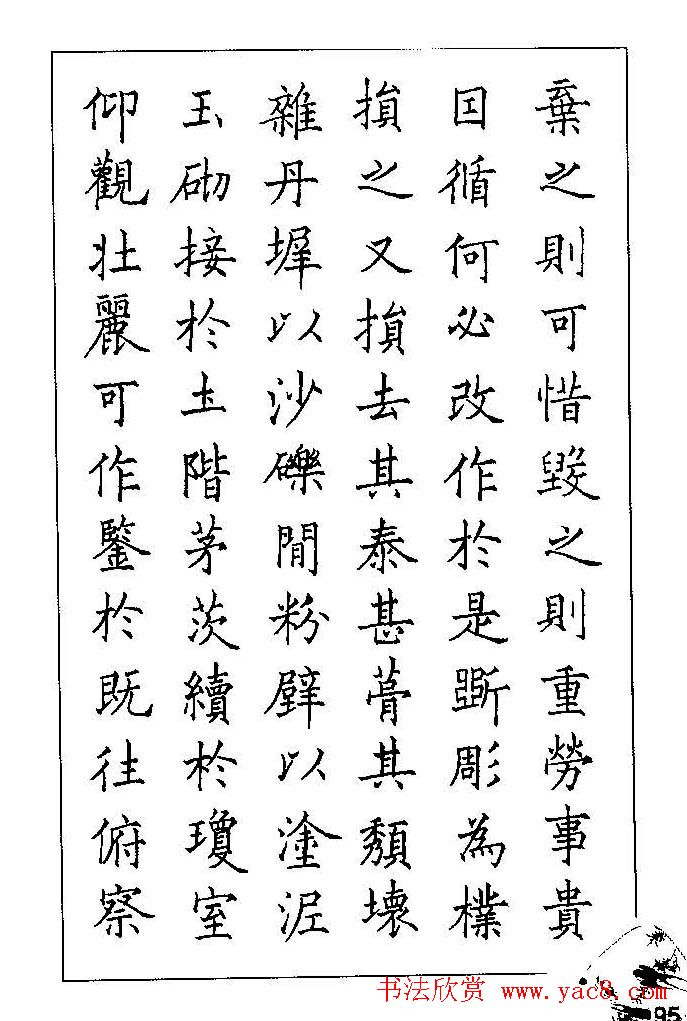 棄之則可惜毀之則重勞事貴
因循何必改作於是斲彫為樸
損之又損去其泰甚葺其頹壞
雜丹墀以沙礫間粉壁以塗泥
玉砌接於土階茅茨續於瓊室
仰觀壯麗可作鑒於既往俯察
书法欣赏 www.yac8.com
95